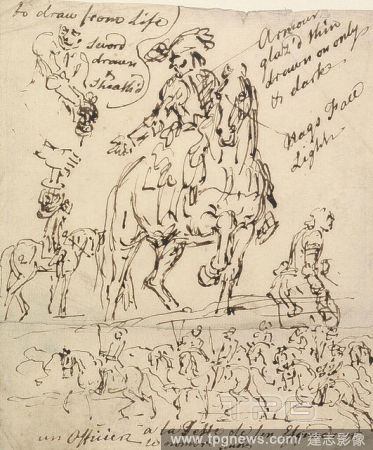 to draw from Life
Sword
drawn
&
Sheath'd
Armour
glaz'd thin
drawn on only
& dark
Nags Face
Lighter
un Officier à la Teste de son
TPG
www.tpgnews.com / 達志影像